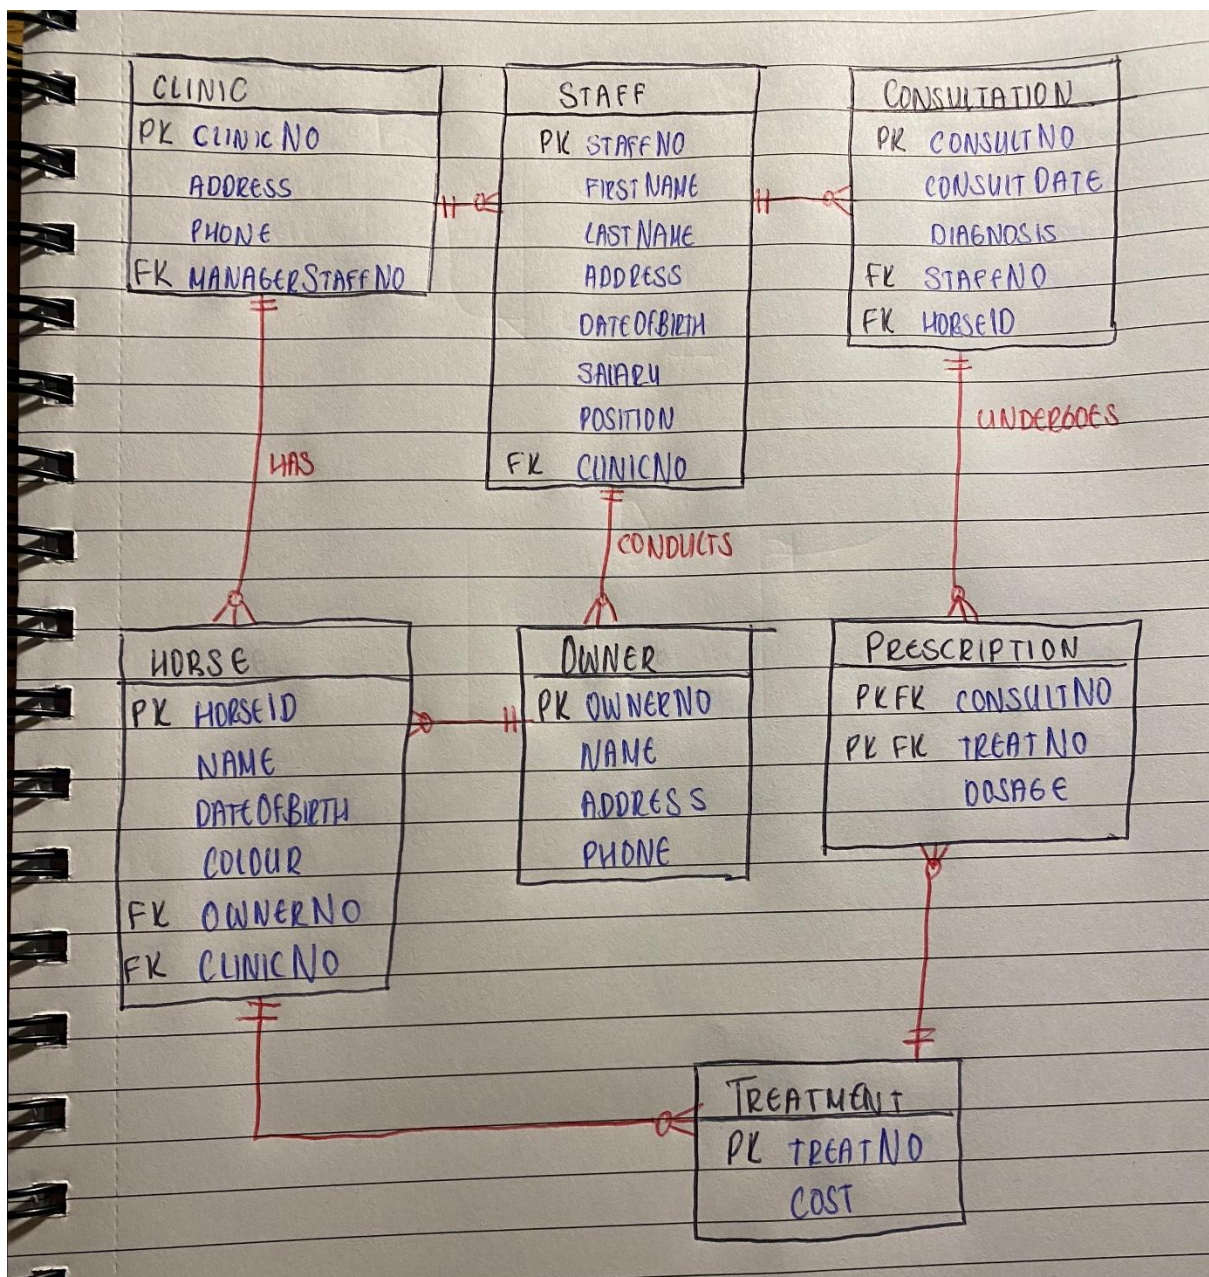 CLINIC
PK CLINICNO
ADDRESS
PHONE
FK MANAGERSTAFFNO
STAFF
PK STAFFNO
FIRSTNAME
LASTNAME
ADDRESS
DATEOFBIRTH
SALARY
POSITION
FK CLINICNO
CONSULTATION
PK CONSULTNO
CONSULTDATE
DIAGNOSIS
FK STAFFNO
FK HORSEID
HAS
CONDUCTS
UNDERGOES
HORSE
PK HORSEID
NAME
DATEOFBIRTH
COLOUR
FK OWNERNO
FK CLINICNO
OWNER
PK OWNERNO
NAME
ADDRESS
PHONE
PRESCRIPTION
PK FK CONSULTNO
PK FK TREATNO
DOSAGE
TREATMENT
PK TREATNO
COST